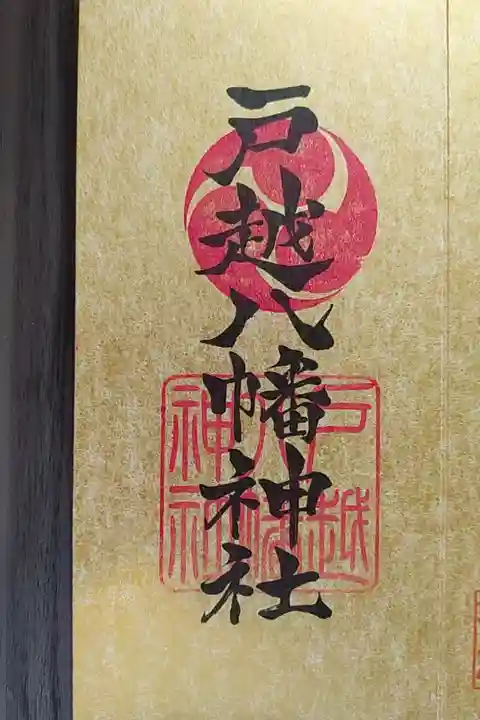 戸越八幡神社
戸越
八幡
神社